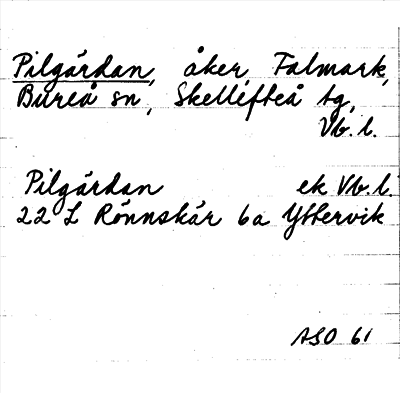 Pilgårdan, åker, Falmark,
Bureå sn, Skellefteå tg,
Vb. l.
Pilgårdan ek Vb. l.
22 L Rönnskär 6a Yttervik
ASO 61